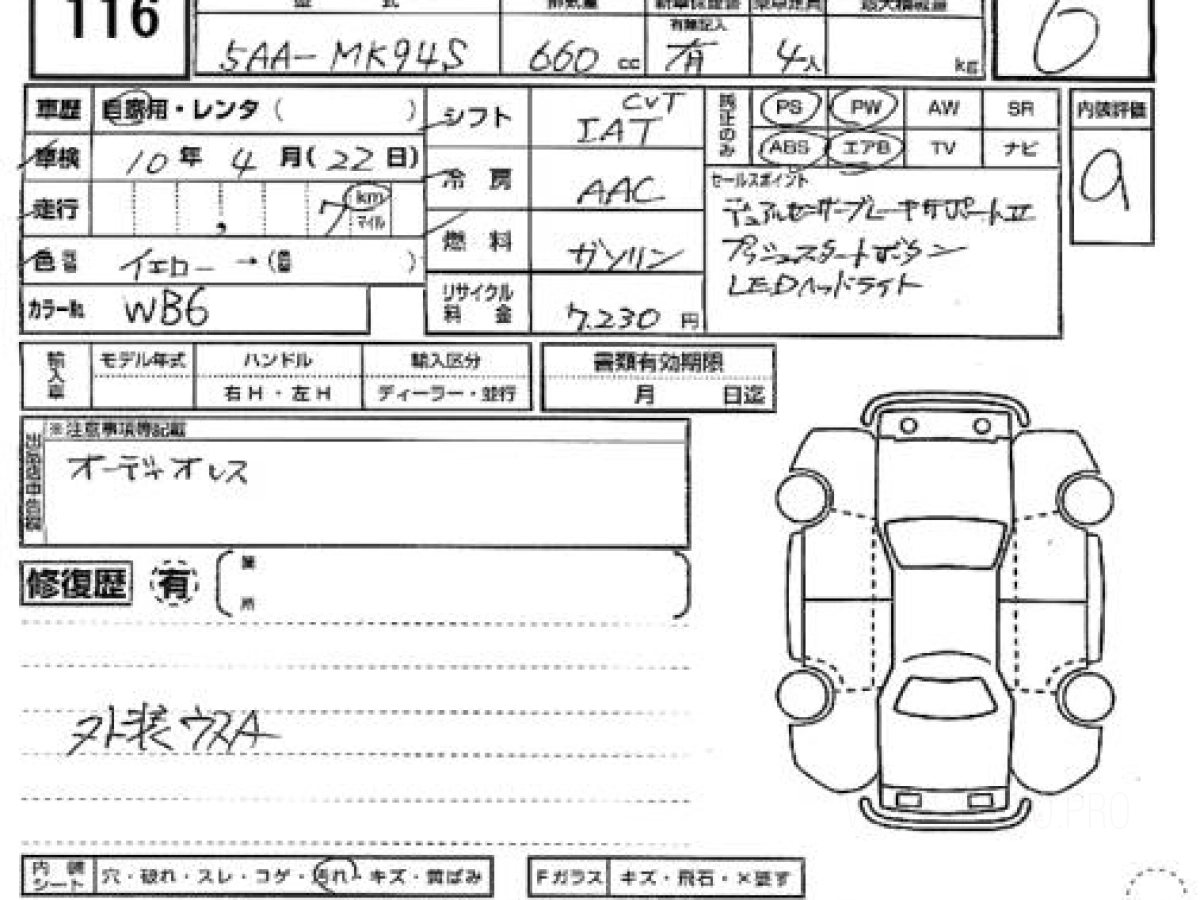 116
型 式
排気量
新車保証書
乗車定員
最大積載量
有無記入
5AA-MK94S
660 cc
有
4人
kg
6
車歴
自家用・レンタ ( )
車検
10年 4月(22日)
走行
7 km マイル
色
イエロー →( )
カラーNo.
WB6
シフト
CVT
IAT
冷 房
AAC
燃 料
ガソリン
リサイクル
料 金
7.230 円
純正のみ
PS PW AW SR
ABS エアB TV ナビ
セールスポイント
デュアルセンサーブレーキサポートII
プッシュスタートボタン
LEDヘッドライト
内装評価
9
輸入車
モデル年式 ハンドル 輸入区分
右H・左H ディーラー・並行
書類有効期限
月 日迄
※注意事項等記載
オーディオレス
修復歴 有
箇
所
外装ウスA
内 装
シート
穴・破れ・スレ・コゲ・汚れ・キズ・黄ばみ
Fガラス キズ・飛石・×要す
.PRO